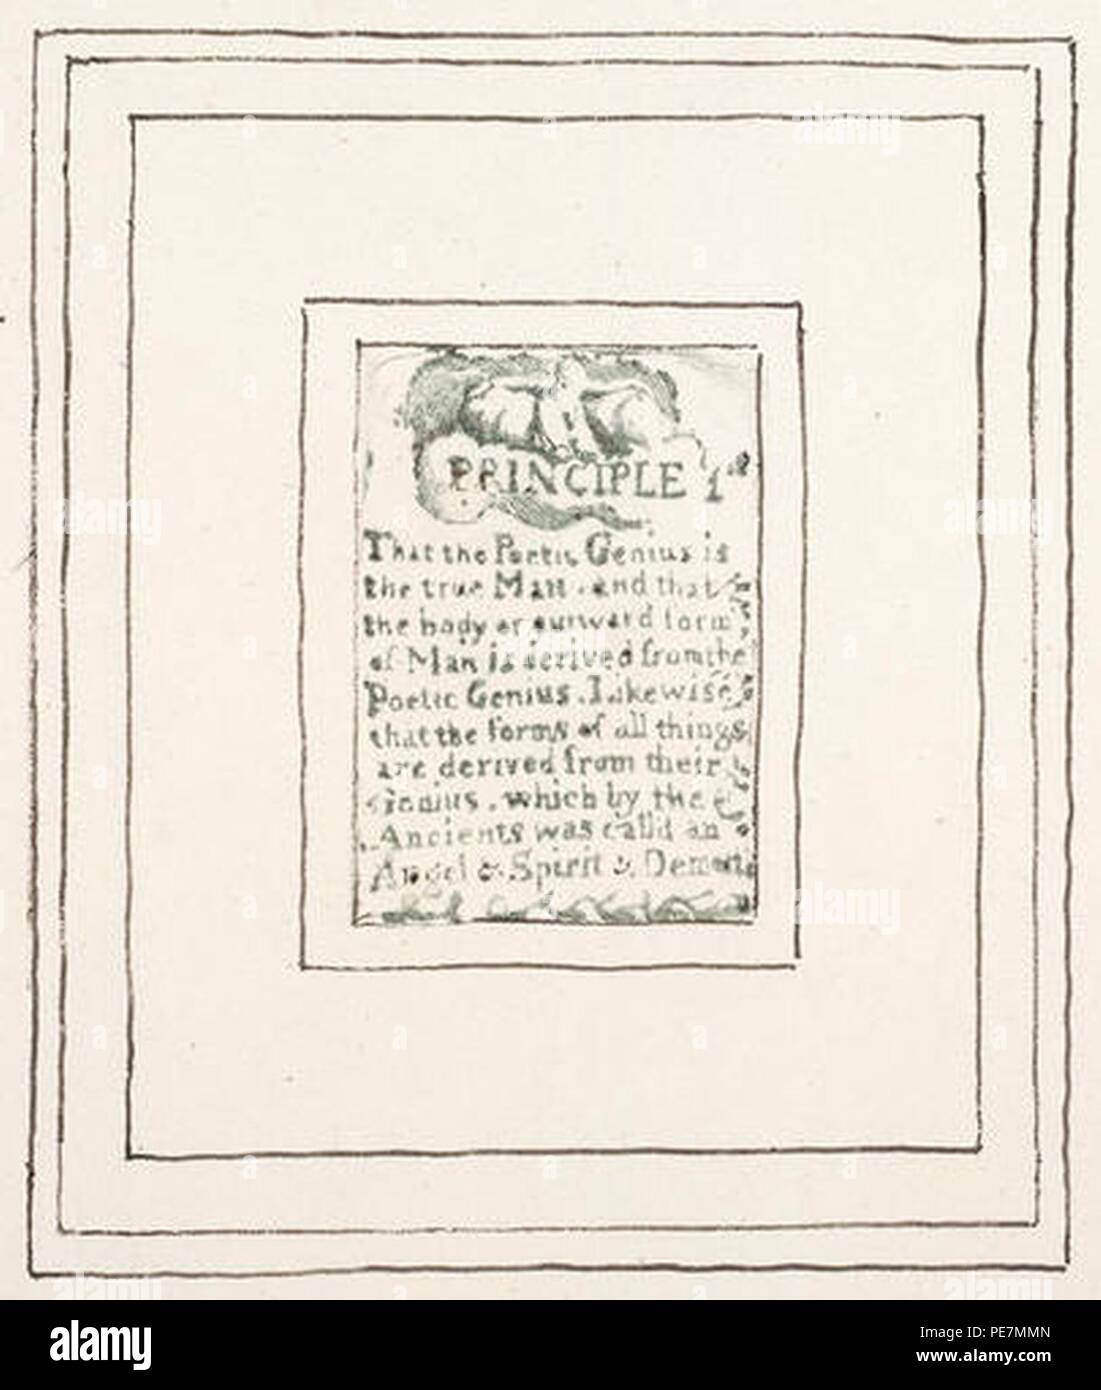 PRINCIPLE 1st
That the Poetic Genius is
the true Man. and that
the body or outward form
of Man is derived from the
Poetic Genius. Likewise
that the forms of all things
are derived from their
Genius. which by the
Ancients was call'd an
Angel & Spirit & Demon
alamy
Image ID: PE7MMN
www.alamy.com